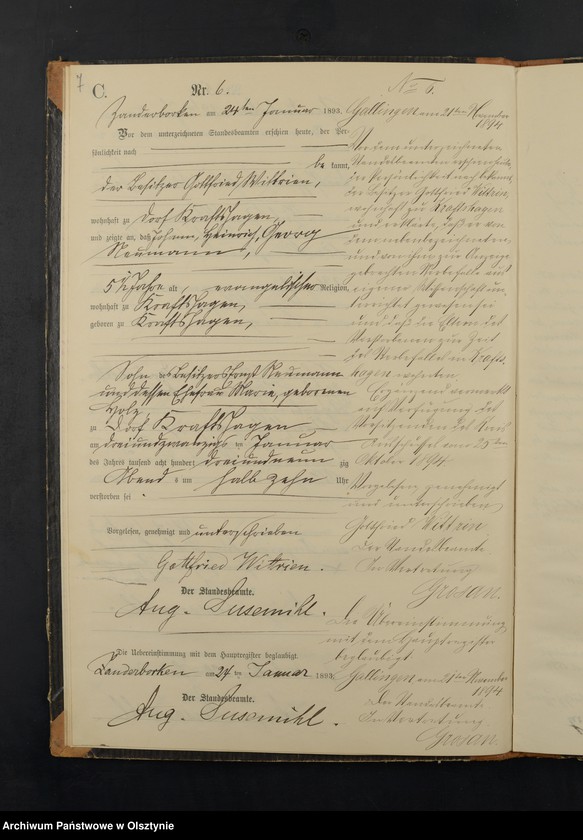 7
C.
Nr. 6.
Zanderborken am 24ten Januar 1893.
Vor dem unterzeichneten Standesbeamten erschien heute, der Per-
sönlichkeit nach
be kannt,
der Besitzer Gottfried Wittrien,
wohnhaft zu Dorf Kraftshagen,
und zeigte an, daß Johann, Heinrich, Georg
Neumann,
5 ½ Jahre alt, evangelischer Religion,
wohnhaft zu Kraftshagen,
geboren zu Kraftshagen,
Sohn des Besitzers Ernst Neumann
und dessen Ehefrau Marie, geborenen
Holz
zu Dorf Kraftshagen
am dreiundzwanzigsten Januar
des Jahres tausend acht hundert dreiundneun zig
Abend s um halb zehn Uhr
verstorben sei
Vorgelesen, genehmigt und unterschrieben
Gottfried Witrien.
Der Standesbeamte.
Aug. Susemihl.
Die Uebereinstimmung mit dem Hauptregister beglaubigt
Zanderborken am 24ten Januar 1893.
Der Standesbeamte.
Aug. Susemihl.
No 6.
Gallingen am 21ten November
1894
Vor dem unterzeichneten
Standesbeamten erschien heute,
der Persönlichkeit nach bekannt,
der Besitzer Gottfried Wittrin,
wohnhaft zu Kraftshagen
und erklärte, daß er von
dem nebenbezeichneten,
und von ihm zur Anzeige
gebrachten Sterbefalle aus
eigener Wissenschaft un-
terrichtet gewesen sei
und daß die Eltern des
Verstorbenen zur Zeit
des Sterbefalles in Krafts-
hagen wohnten.
Ergänzend vermerkt
auf Verfügung des
Vorsitzenden des Kreis-
Ausschusses vom 25ten
Oktober 1894.
Vorgelesen, genehmigt
und unterschrieben
Gottfried Wittrin
Der Standesbeamte
In Vertretung
Grosan.
Die Übereinstimmung
mit dem Hauptregister
beglaubigt
Gallingen am 21ten November
1894
Der Standesbeamte
In Vertretung
Grosan.
Archiwum Państwowe w Olsztynie